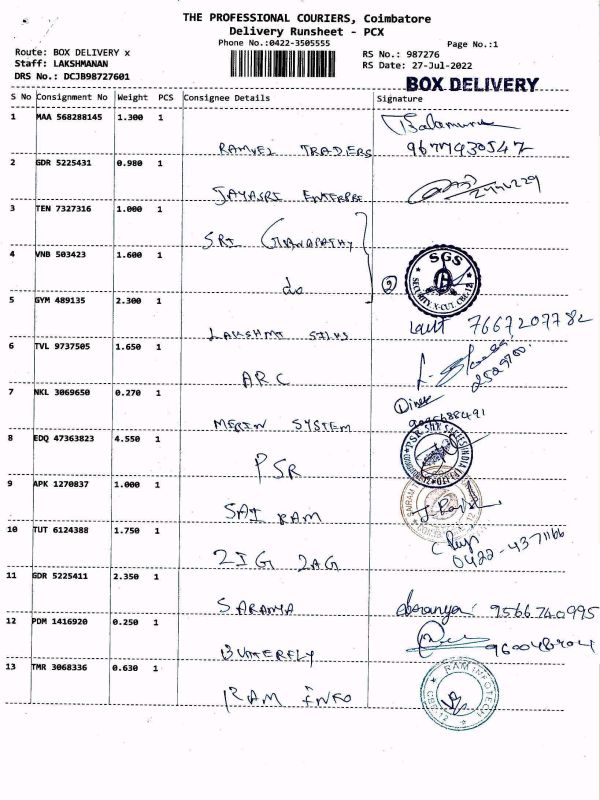 THE PROFESSIONAL COURIERS, Coimbatore
Delivery Runsheet - PCX
Phone No.:0422-3505555
Page No.:1
Route: BOX DELIVERY x
RS No.: 987276
Staff: LAKSHMANAN
RS Date: 27-Jul-2022
DRS No.: DCJB98727601
BOX DELIVERY
S No Consignment No Weight PCS Consignee Details Signature
1 MAA 568288145 1.300 1
RAMVEL TRADERS 9677930547
2 GDR 5225431 0.980 1
JAYASRI ENTERPRI
3 TEN 7327316 1.000 1
SRI GUANAPATHY
4 VNB 503423 1.600 1
do 2
SGS
SECURITY X-CUT. CBE-12
5 GYM 489135 2.300 1
LAKSHMI SILKS 7667207782
6 TVL 9737505 1.650 1
ARC
7 NKL 3069650 0.270 1
MERIN SYSTEM
8 EDQ 47363823 4.550 1
PSR
9 APK 1270837 1.000 1
SAI RAM
10 TUT 6124388 1.750 1
ZIG ZAG 0422-4371166
11 GDR 5225411 2.350 1
SARANYA Saranya: 9566740995
12 PDM 1416920 0.250 1
BUTTERFLY
13 TMR 3068336 0.630 1
RAM INFO
RAM INFOTECH
CBE-12